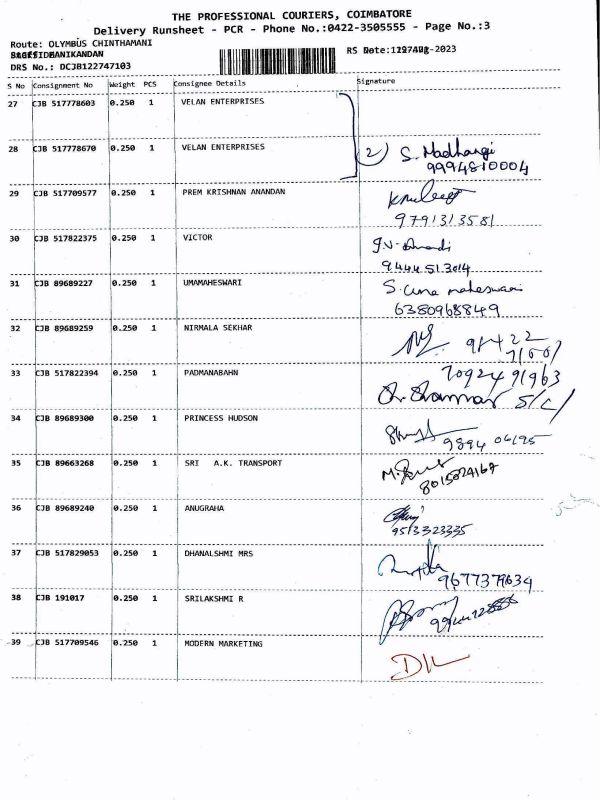 THE PROFESSIONAL COURIERS, COIMBATORE
Delivery Runsheet - PCR - Phone No.:0422-3505555 - Page No.:3
Route: OLYMBUS CHINTHAMANI
DRS No.: DCJB122747103
S No Consignment No Weight PCS Consignee Details Signature
27 CJB 517778603 0.250 1 VELAN ENTERPRISES
28 CJB 517778670 0.250 1 VELAN ENTERPRISES
2 S. Madhangi
9994810004
29 CJB 517709577 0.250 1 PREM KRISHNAN ANANDAN
9791313581
30 CJB 517822375 0.250 1 VICTOR
9444513014
31 CJB 89689227 0.250 1 UMAMAHESWARI
S. Uma maheswari
6380968849
32 CJB 89689259 0.250 1 NIRMALA SEKHAR
33 CJB 517822394 0.250 1 PADMANABAHN
7092491963
S/C/
34 CJB 89689300 0.250 1 PRINCESS HUDSON
9894 06195
35 CJB 89663268 0.250 1 SRI A.K. TRANSPORT
8015024167
36 CJB 89689240 0.250 1 ANUGRAHA
9513323335
37 CJB 517829053 0.250 1 DHANALSHMI MRS
38 CJB 191017 0.250 1 SRILAKSHMI R
39 CJB 517709546 0.250 1 MODERN MARKETING